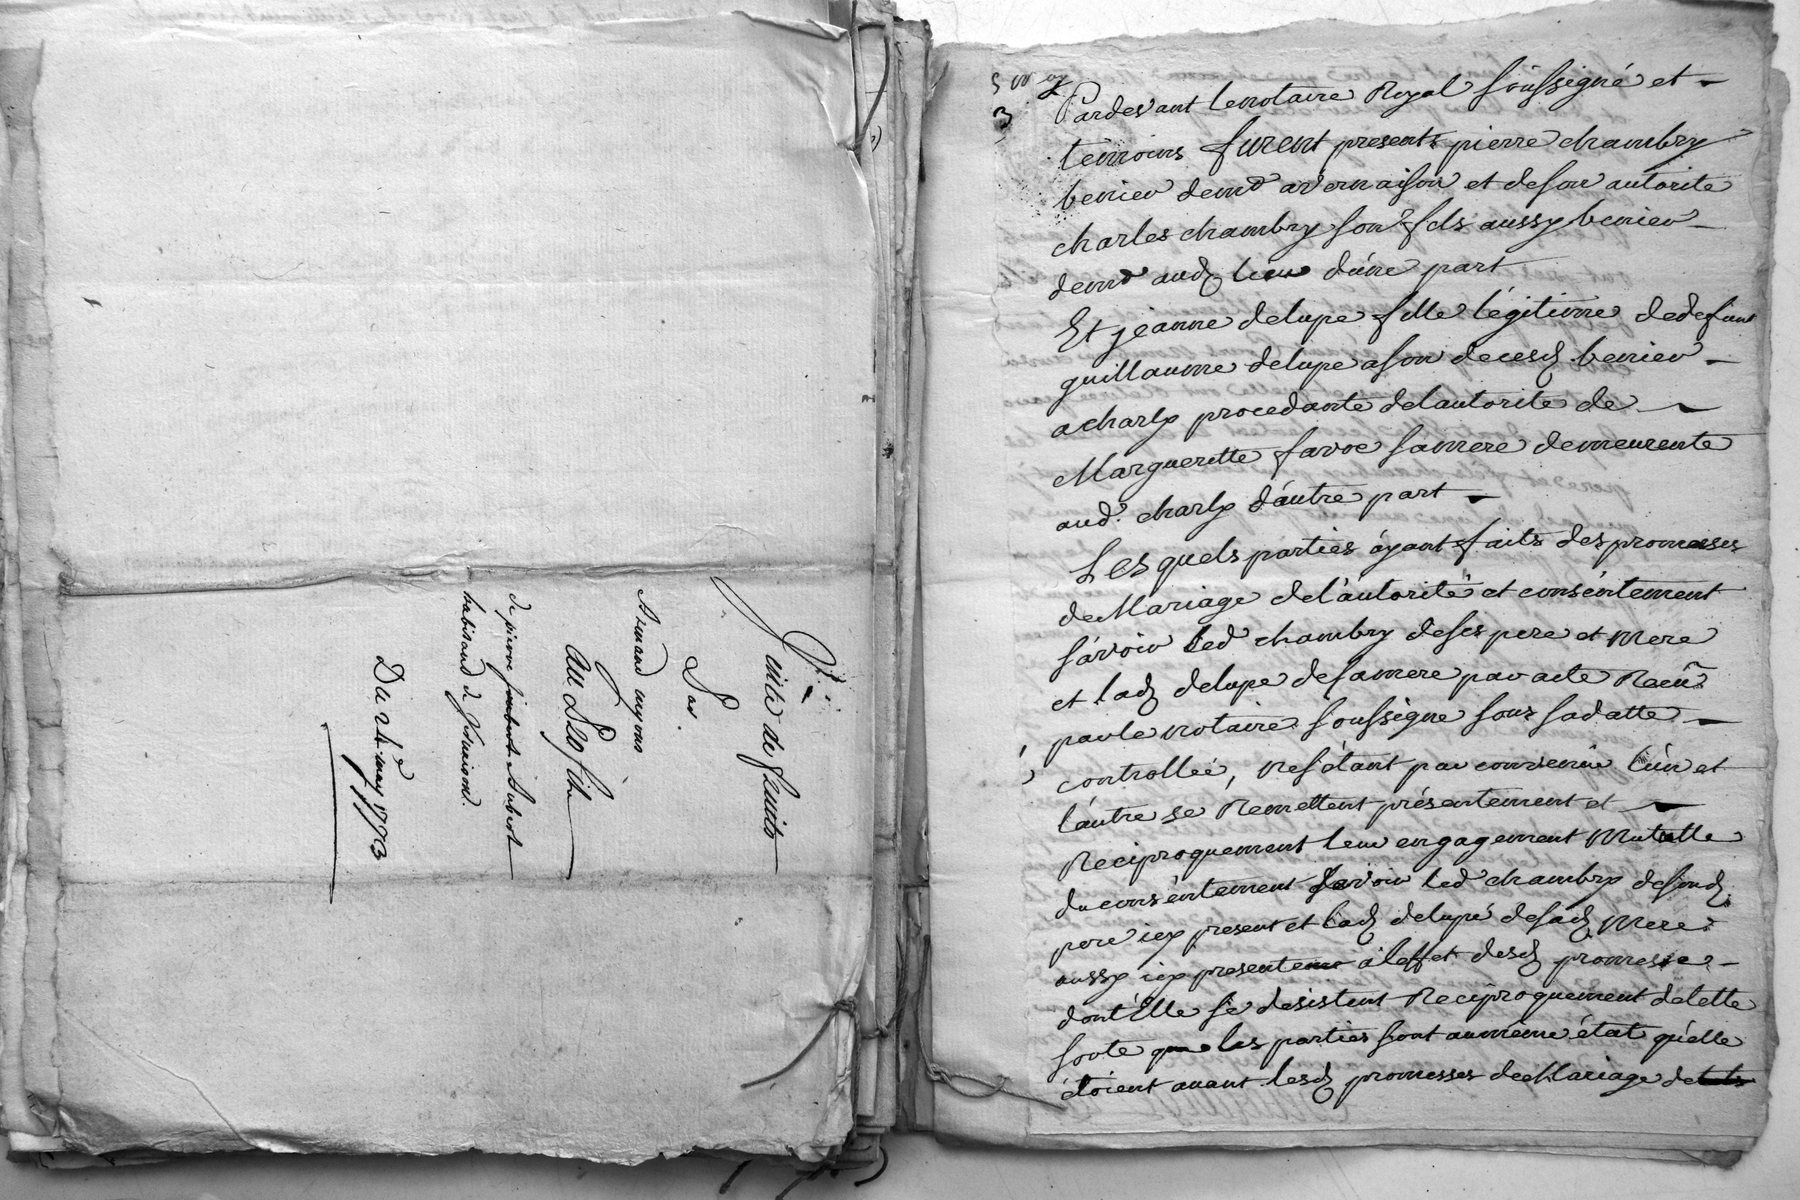 Vente de fruits
Par
au Sr
de pierre Aubert
habitand de
Du 24 may 1773
5 may
3
Pardevant le notaire Royal soussigné et
temoins furent presents pierre chambry
demt a vernaison et de son autorite
charles chambry son fils aussy
demt aud lieu d'une part
Et jeanne delupe fille légitime de defunt
guillaume delupe a son deces
a charly procedante de l'autorite de
Marguerette favre sa mere demeurente
aud. charly d'autre part
Les quels parties áyant faits des promesses
de Mariage de l'áutorité et conséntement
sávoir led chambry de ses pere et mere
et lad delupe de sa mere par acte Recû
par le notaire soussigne sous sa datte
controlleé, nestant pas convenûe l'ún et
l'áutre se Remettent présentement et
Reciproquement leur engagement Mutuelle
du conséntement savoir led chambry de sond
pere icy present et lad delupé de sad Mere
aussy icy presente á l'effet desd promesse
dont Elle se desistent Reciproquement de lette
sorte que les parties sont au même état quélle
étoient avant lesd promesses de Mariage